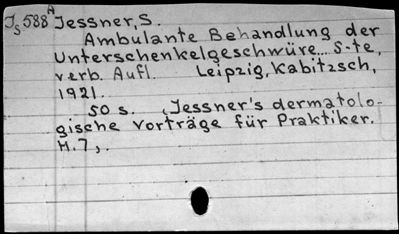 J₅588ᴬ Jessner, S.
Ambulante Behandlung der
Unterschenkelgeschwüre... 5-te,
verb. Aufl. Leipzig, Kabitzsch,
1921.
50 s. (Jessner's dermatolo-
gische Vorträge für Praktiker.
H.7).